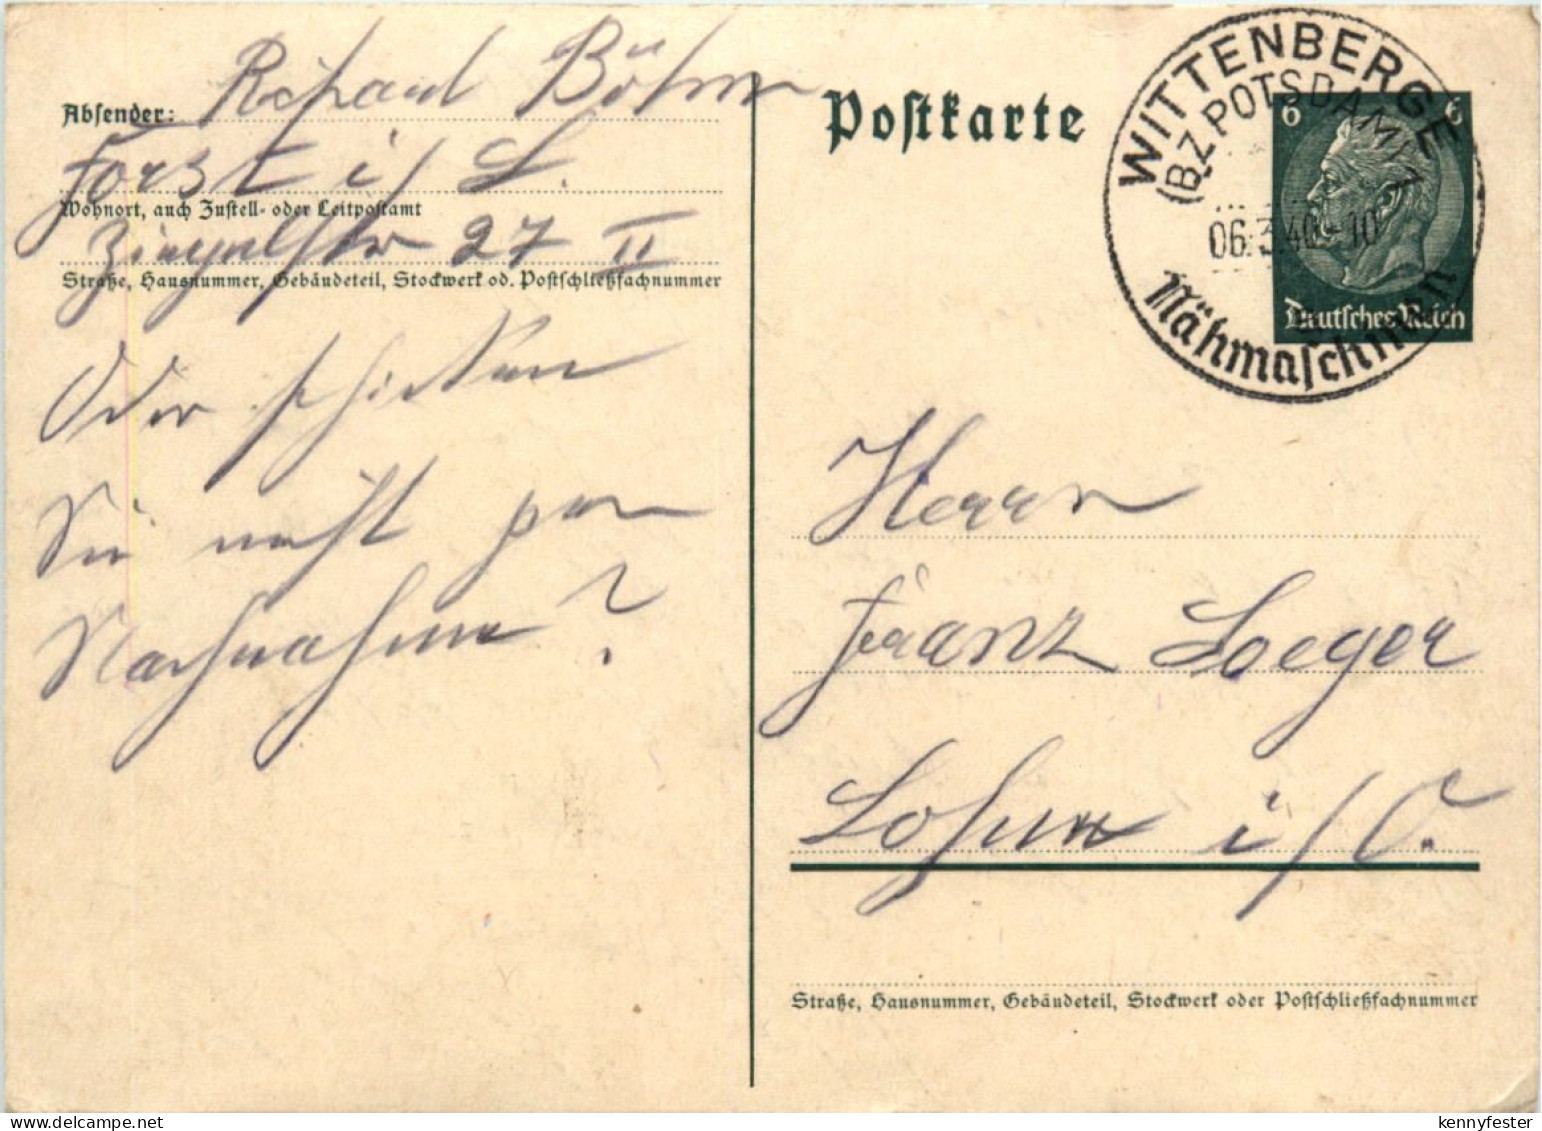 Absender: Richard Böhm
Forst i/ L.
Wohnort, auch Zustell- oder Leitpostamt
27 II
Straße, Hausnummer, Gebäudeteil, Stockwerk od. Postschließfachnummer
Oder schicken
Sie nicht per
Nachnahme?
Postkarte
WITTENBERGE
(BZ. POTSDAM) 1
06.3.40-10
Nähmaschinen
6 6
Deutsches Reich
Herrn
Franz Loeger
Lohne i/O.
Straße, Hausnummer, Gebäudeteil, Stockwerk oder Postschließfachnummer
kennyfester